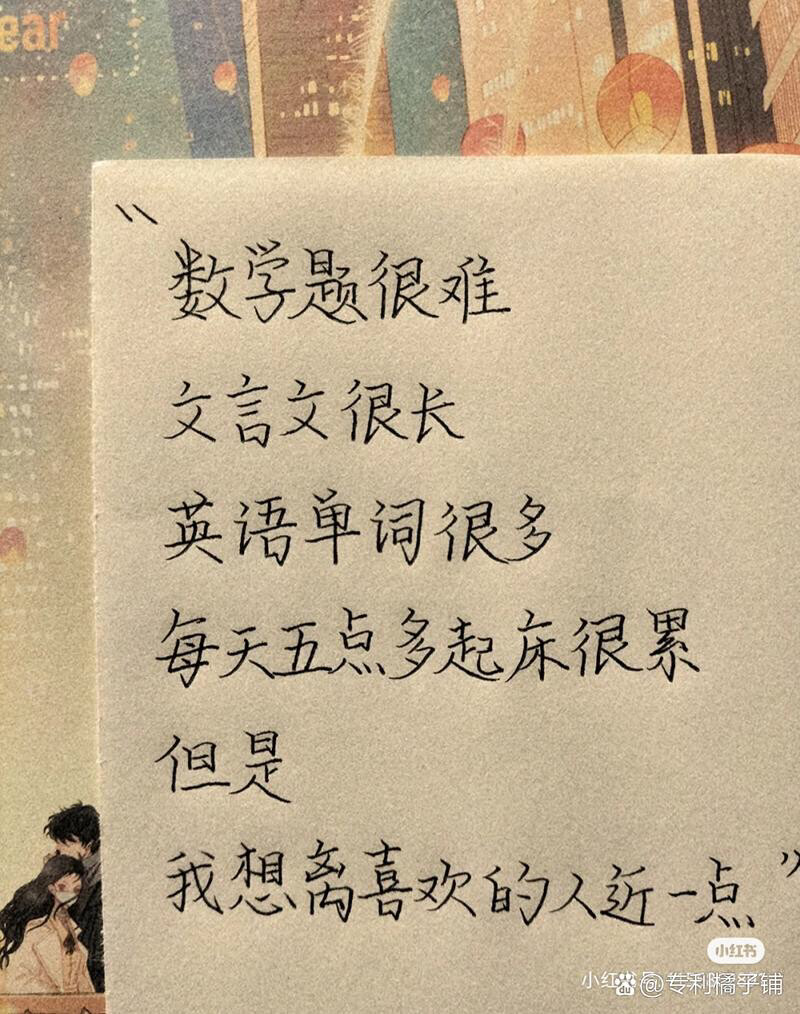 ear
“
数学题很难
文言文很长
英语单词很多
每天五点多起床很累
但是
我想离喜欢的人近一点”
小红书
du @专利橘子铺